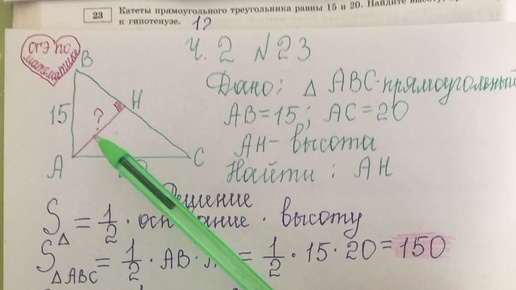 23 Катеты прямоугольного треугольника равны 15 и 20. Найдите
к гипотенузе. 12
ОГЭ по математике
Ч. 2 N 23
B
15
?
H
A
C
Дано: △ ABC-прямоугольный
AB=15; AC=20
AH- высота
Найти: AH
Решение
S△ = 1/2 · основание · высоту
S△ABC = 1/2 · AB · = 1/2 · 15 · 20 = 150